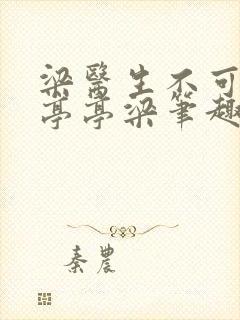 梁醫生不可
亭亭梁筆趣
秦農